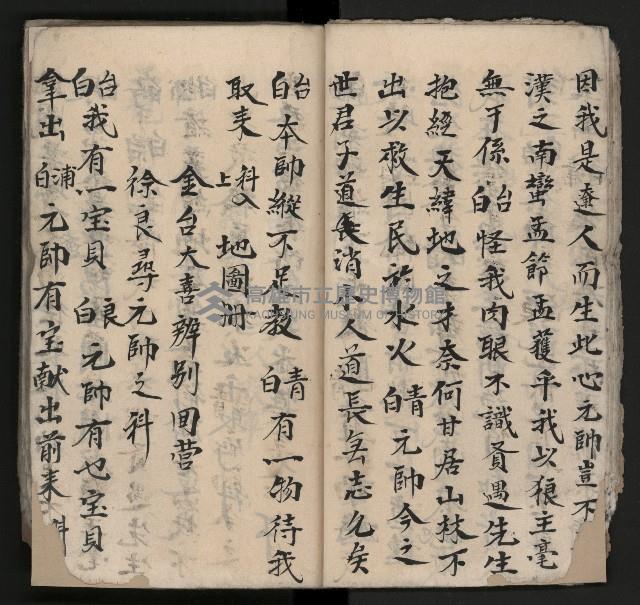 因我是遼人而生此心元帥豈不
漢之南蠻孟節孟獲乎我以狼主毫
無干係台白怪我肉眼不識貧遇先生
抱經天緯地之才奈何甘居山林不
出以救生民於水火青白元帥今之
世君子道長消人道長矣志么矣
台白本帥縱不足教青白有一物待我
取来科上入地圖冊
金台大喜辨别回营
徐良尋元帥之科
台白我有一宝貝良白元帥有也宝貝
拿出浦白元帥有宝献出前来科
高雄市立歷史博物館
KAOHSIUNG MUSEUM OF HISTORY